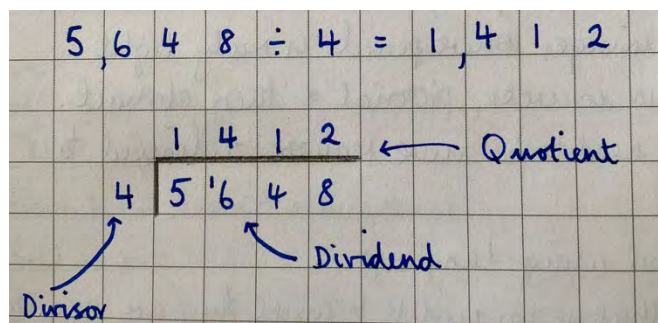 5,648 ÷ 4 = 1,412
1 4 1 2 ← Quotient
4 5 ¹6 4 8
Dividend
Divisor